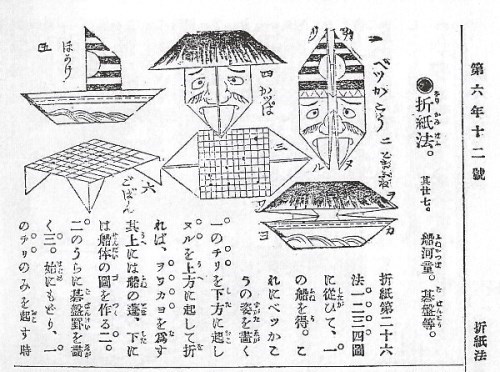 第六年十二號
折紙法
●折紙法。 其廿七。 船河童。碁盤等。
一 ベツかこう
二
三
四 かつぱ
五 ほかけ
六 ごばん
折紙第二十六
法一二三四圖
に從ひて、一
の船を得。こ
れにベツカこ
うの姿を畫く
一のチリを下方に起し
ヌルを上方に起して折
れば、ヲワカヨを爲す
其上には船の蓬、下に
は船体の圖を作る二。
二のうらに碁盤罫を畫
く三。始にもどり、一
のチリのみを起す時